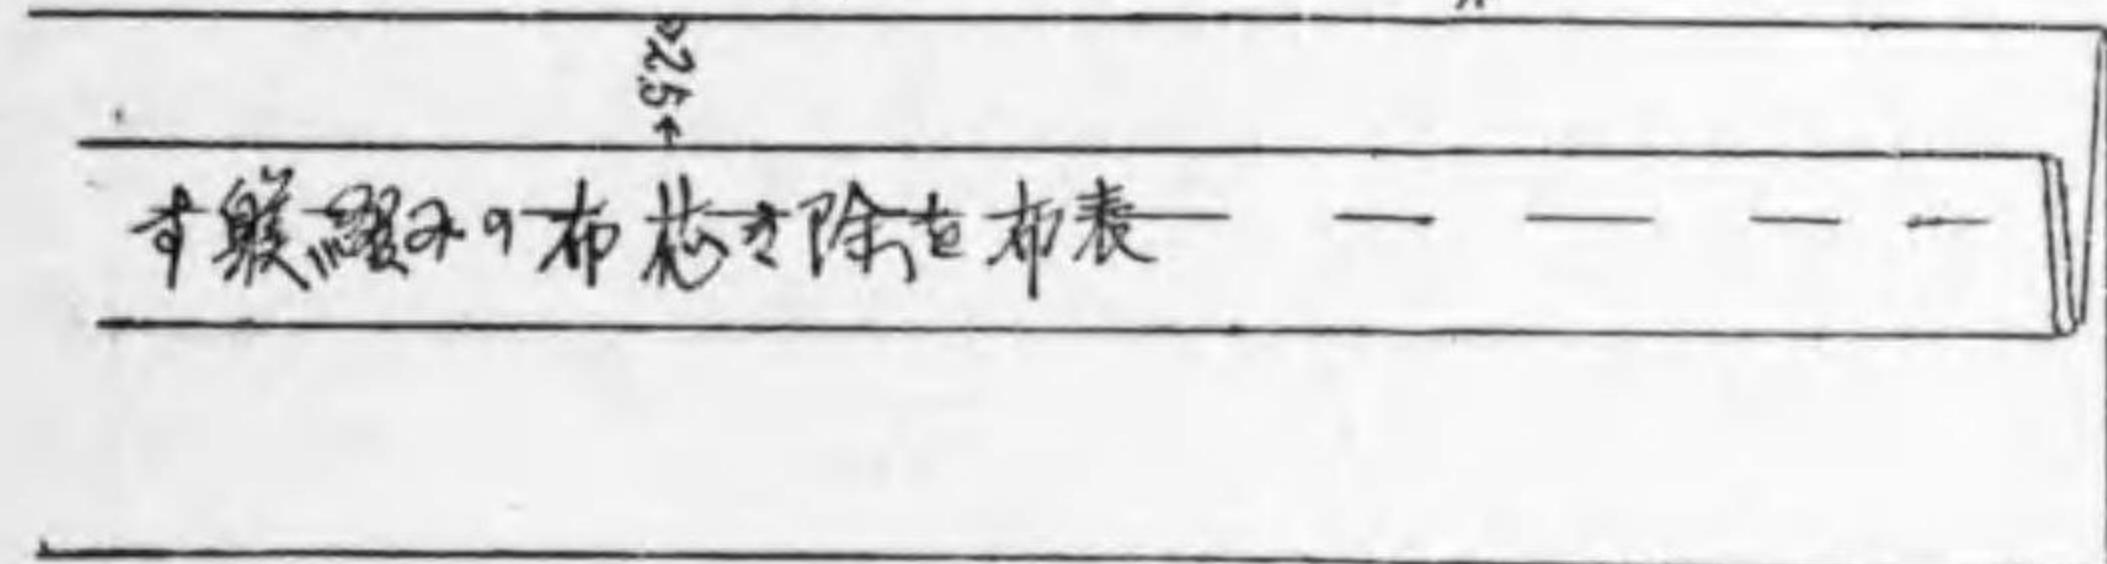 2.5
表布を除き芯布のみ綴躾す